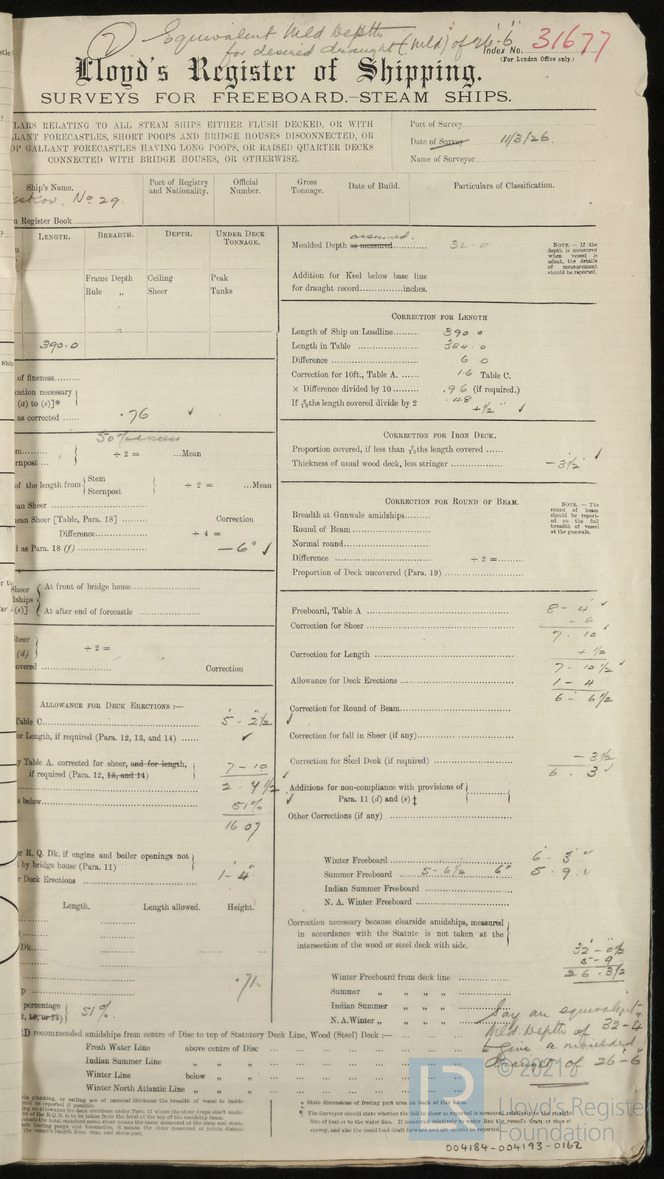 ② Equivalent Mld Depth
for desired draught (mld) of 26'-6"
Index No. 31677
(For London Office only.)
Lloyd's Register of Shipping.
SURVEYS FOR FREEBOARD.—STEAM SHIPS.
LARS RELATING TO ALL STEAM SHIPS EITHER FLUSH DECKED, OR WITH
LANT FORECASTLES, SHORT POOPS AND BRIDGE HOUSES DISCONNECTED, OR
OP GALLANT FORECASTLES HAVING LONG POOPS, OR RAISED QUARTER DECKS
CONNECTED WITH BRIDGE HOUSES, OR OTHERWISE.
Port of Survey
Date of Survey 11/3/26.
Name of Surveyor
Ship's Name.
Port of Registry and Nationality.
Official Number.
Gross Tonnage.
Date of Build.
Particulars of Classification.
No 29.
n Register Book
LENGTH. BREADTH. DEPTH. UNDER DECK TONNAGE.
Frame Depth Ceiling Peak
Rule „ Sheer Tanks
390.0
of fineness
cation necessary
(a) to (e)]*
as corrected .76 ✓
50% excess
m ÷ 2 = Mean
rnpost
of the length from { Stem Sternpost } ÷ 2 = Mean
an Sheer
ean Sheer [Table, Para. 18] Correction
Difference ÷ 4 =
d as Para. 18 (f) — 6" ✓
Sheer
dships
(e)]
At front of bridge house
At after end of forecastle
heer
(d) ÷ 2 =
overed Correction
ALLOWANCE FOR DECK ERECTIONS :—
Table C 5 - 2½
or Length, if required (Para. 12, 13, and 14) ✓
y Table A. corrected for sheer, and for length,
if required (Para. 12, 13, and 14) 7 - 10
2 - 7½
s below 51%
16.07
or R. Q. Dk. if engine and boiler openings not
by bridge house (Para. 11)
r Deck Erections 1 - 4
Length. Length allowed. Height.
Dk.
.71
p
percentage
2, 13, or 14) 51%
Moulded Depth as measured assumed. 32-0
Addition for Keel below base line
for draught record inches.
NOTE.—If the depth is measured when vessel is afloat, the details of measurement should be reported.
CORRECTION FOR LENGTH
Length of Ship on Loadline 390.0
Length in Table 384.0
Difference 6 0
Correction for 10ft., Table A. 1.6 Table C.
× Difference divided by 10 .96 (if required.)
If ths length covered divide by 2 .48
+½ ✓
CORRECTION FOR IRON DECK.
Proportion covered, if less than ths length covered
Thickness of usual wood deck, less stringer — 3½ ✓
CORRECTION FOR ROUND OF BEAM.
Breadth at Gunwale amidships
Round of Beam
Normal round
Difference ÷ 2 =
Proportion of Deck uncovered (Para. 19)
NOTE.—The round of beam should be reported on the full breadth of vessel at the gunwale.
Freeboard, Table A 8 - 4 ✓
Correction for Sheer - 6
7 . 10
Correction for Length + ½
7 - 10½
Allowance for Deck Erections 1 - 4
6 - 6½
Correction for Round of Beam
Correction for fall in Sheer (if any)
Correction for Steel Deck (if required) — 3½
6 . 3
Additions for non-compliance with provisions of
Para. 11 (d) and (e) ‡
Other Corrections (if any)
Winter Freeboard 6 - 3 ✓
Summer Freeboard 5 - 6½ 6" 5 . 9 ✓
Indian Summer Freeboard
N. A. Winter Freeboard
Correction necessary because clearside amidships, measured
in accordance with the Statute is not taken at the
intersection of the wood or steel deck with side.
32 - 0½
5 - 9
26 . 3½
Winter Freeboard from deck line
Summer „ „ „ „
Indian Summer „ „ „ „
N. A. Winter „ „ „ „
Say an equivalent
mld Depth of 32-4
to give a moulded
draught of 26-6
D recommended amidships from centre of Disc to top of Statutory Deck Line, Wood (Steel) Deck :—
Fresh Water Line above centre of Disc
Indian Summer Line „ „
Winter Line below „ „
Winter North Atlantic Line „ „
© 2021
LR
Lloyd's Register
Foundation
004184-004193-0162